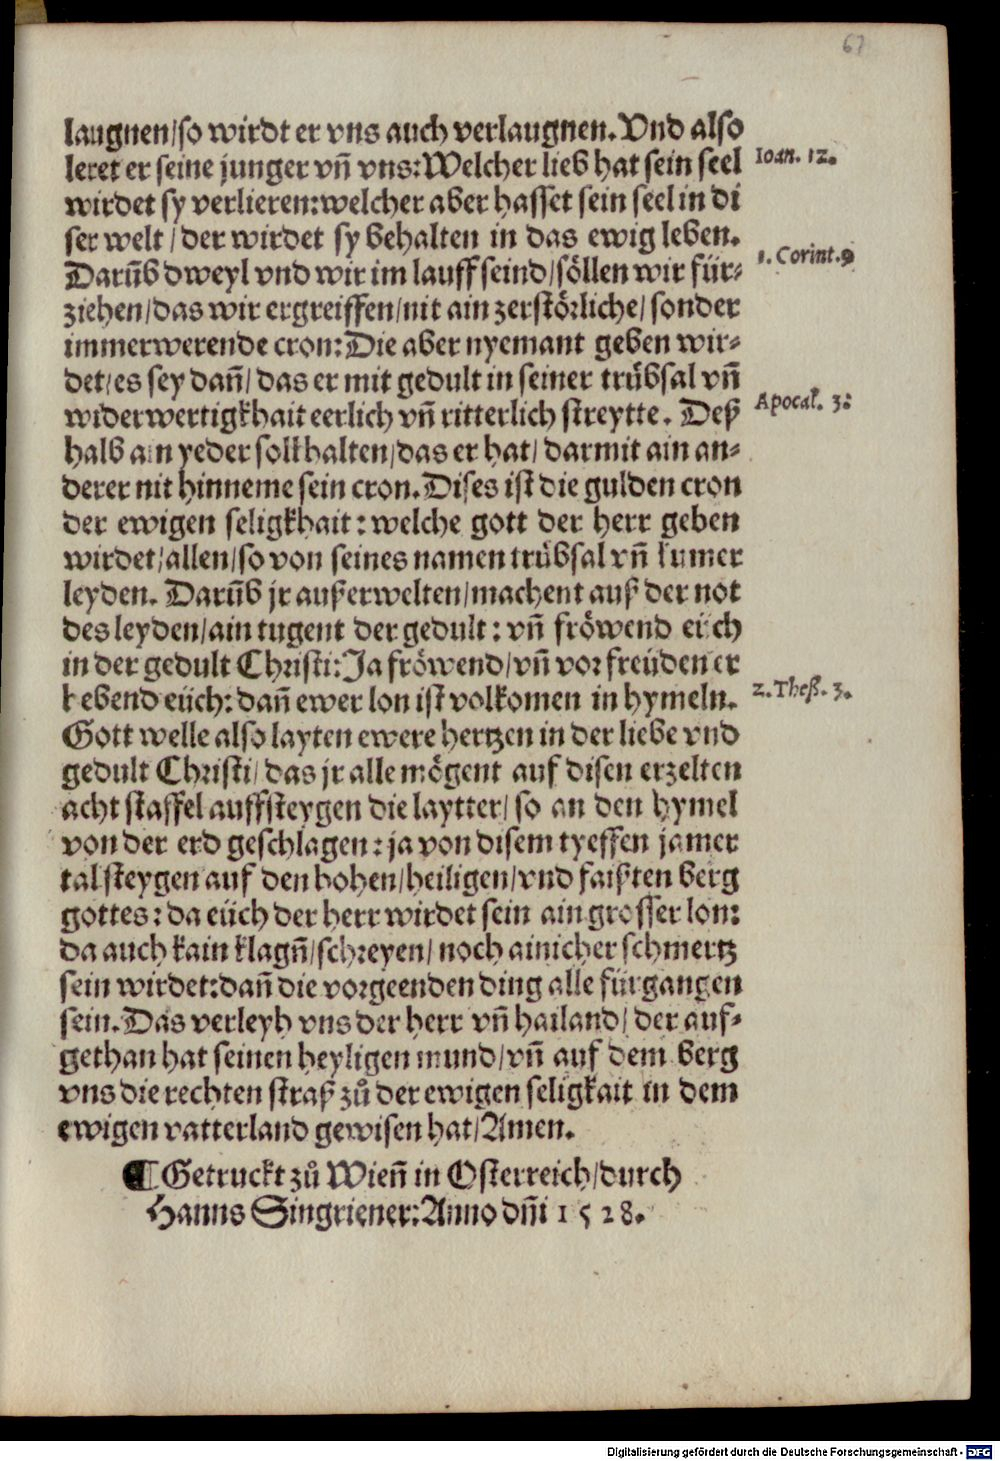 67
laugnen/so wirdt er vns auch verlaugnen. Vnd also
leret er seine junger vñ vns: Welcher lieb hat sein seel
Ioan. 12.
wirdet sy verlieren: welcher aber hasset sein seel in di
ser welt / der wirdet sy behalten in das ewig leben.
1. Corint. 9
Darüb dweyl vnd wir im lauff seind/söllen wir für-
ziehen/das wir ergreiffen/nit ain zerstörliche/sonder
immerwerende cron: Die aber nyemant geben wir-
det/es sey dañ/das er mit gedult in seiner trübsal vñ
widerwertigkhait eerlich vñ ritterlich streytte. Deß
Apocal. 3:
halb ain yeder soll halten/das er hat/darmit ain an-
derer nit hinneme sein cron. Dises ist die gulden cron
der ewigen seligkhait: welche gott der herr geben
wirdet/allen/so von seines namen trübsal vñ kumer
leyden. Darüb jr außerwelten/machent auß der not
des leyden/ain tugent der gedult: vñ fröwend eüch
in der gedult Christi: Ja fröwend/vñ vor freüden er
hebend eüch: dañ ewer lon ist volkomen in hymeln.
2. Theß. 3.
Gott welle also layten ewere hertzen in der liebe vnd
gedult Christi/das jr alle mögent auf disen erzelten
acht staffel auffsteygen die laytter/so an den hymel
von der erd geschlagen: ja von disem tyeffen jamer
tal steygen auf den hohen/heiligen/vnd faißten berg
gottes: da eüch der herr wirdet sein ain grosser lon:
da auch kain klagñ/schreyen/noch ainicher schmertz
sein wirdet: dañ die vorgeenden ding alle fürgangen
sein. Das verleyh vns der herr vñ hailand/der auf-
gethan hat seinen heyligen mund/vñ auf dem berg
vns die rechten straß zů der ewigen seligkait in dem
ewigen vatterland gewisen hat/Amen.
¶ Getruckt zů Wieñ in Osterreich/durch
Hanns Singriener: Anno dñi 1528.
Digitalisierung gefördert durch die Deutsche Forschungsgemeinschaft - DFG